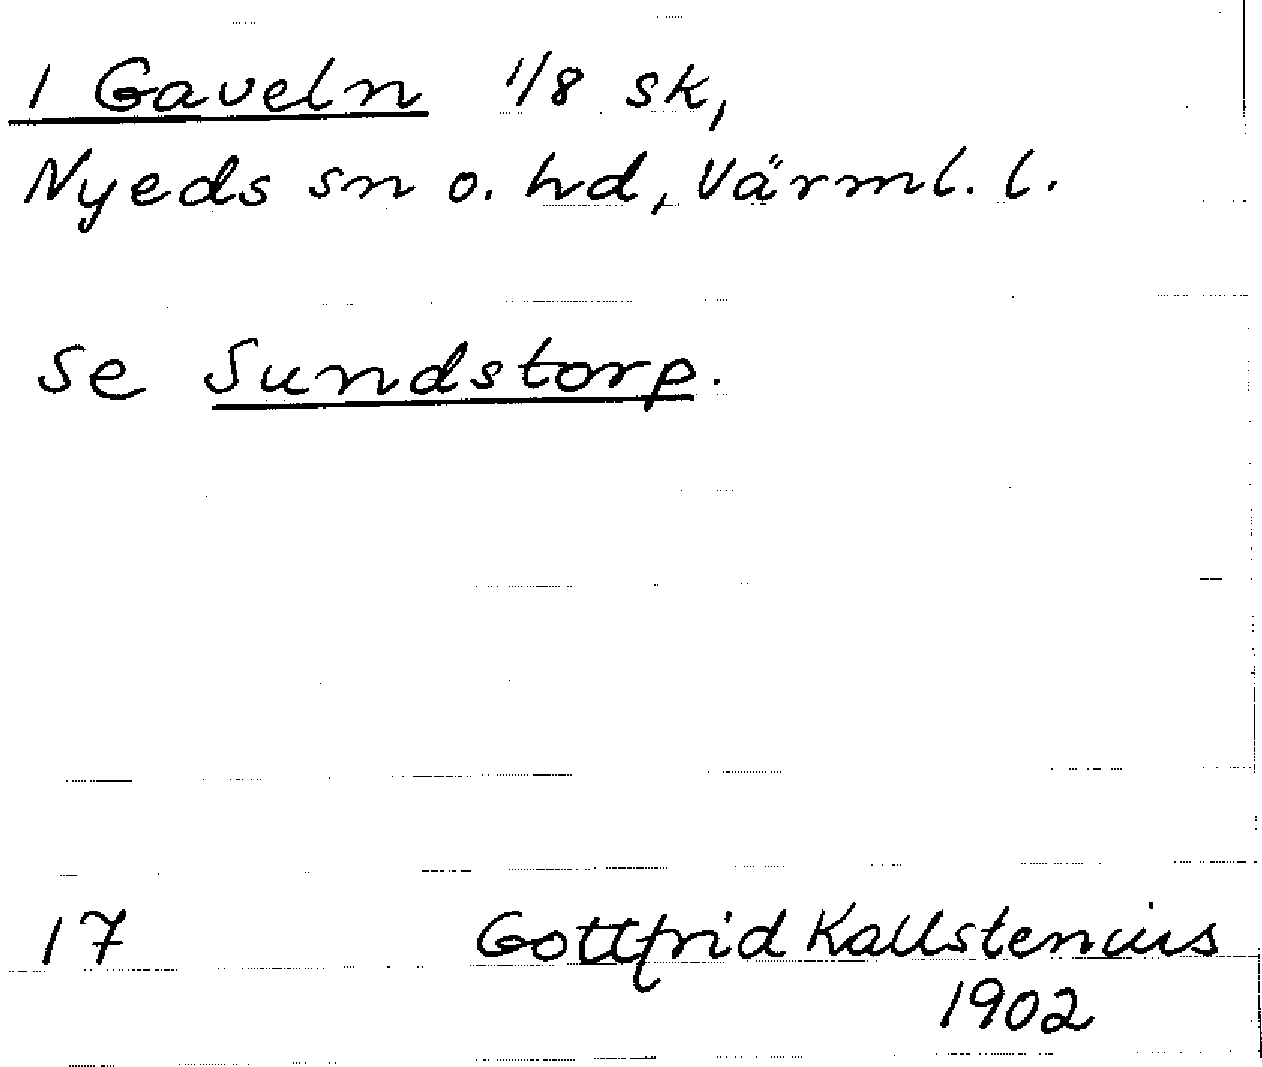 1 Gaveln 1/8 sk,
Nyeds sn o. hd, Värml. l.
Se Sundstorp.
17 Gottfrid Kallstenius
1902